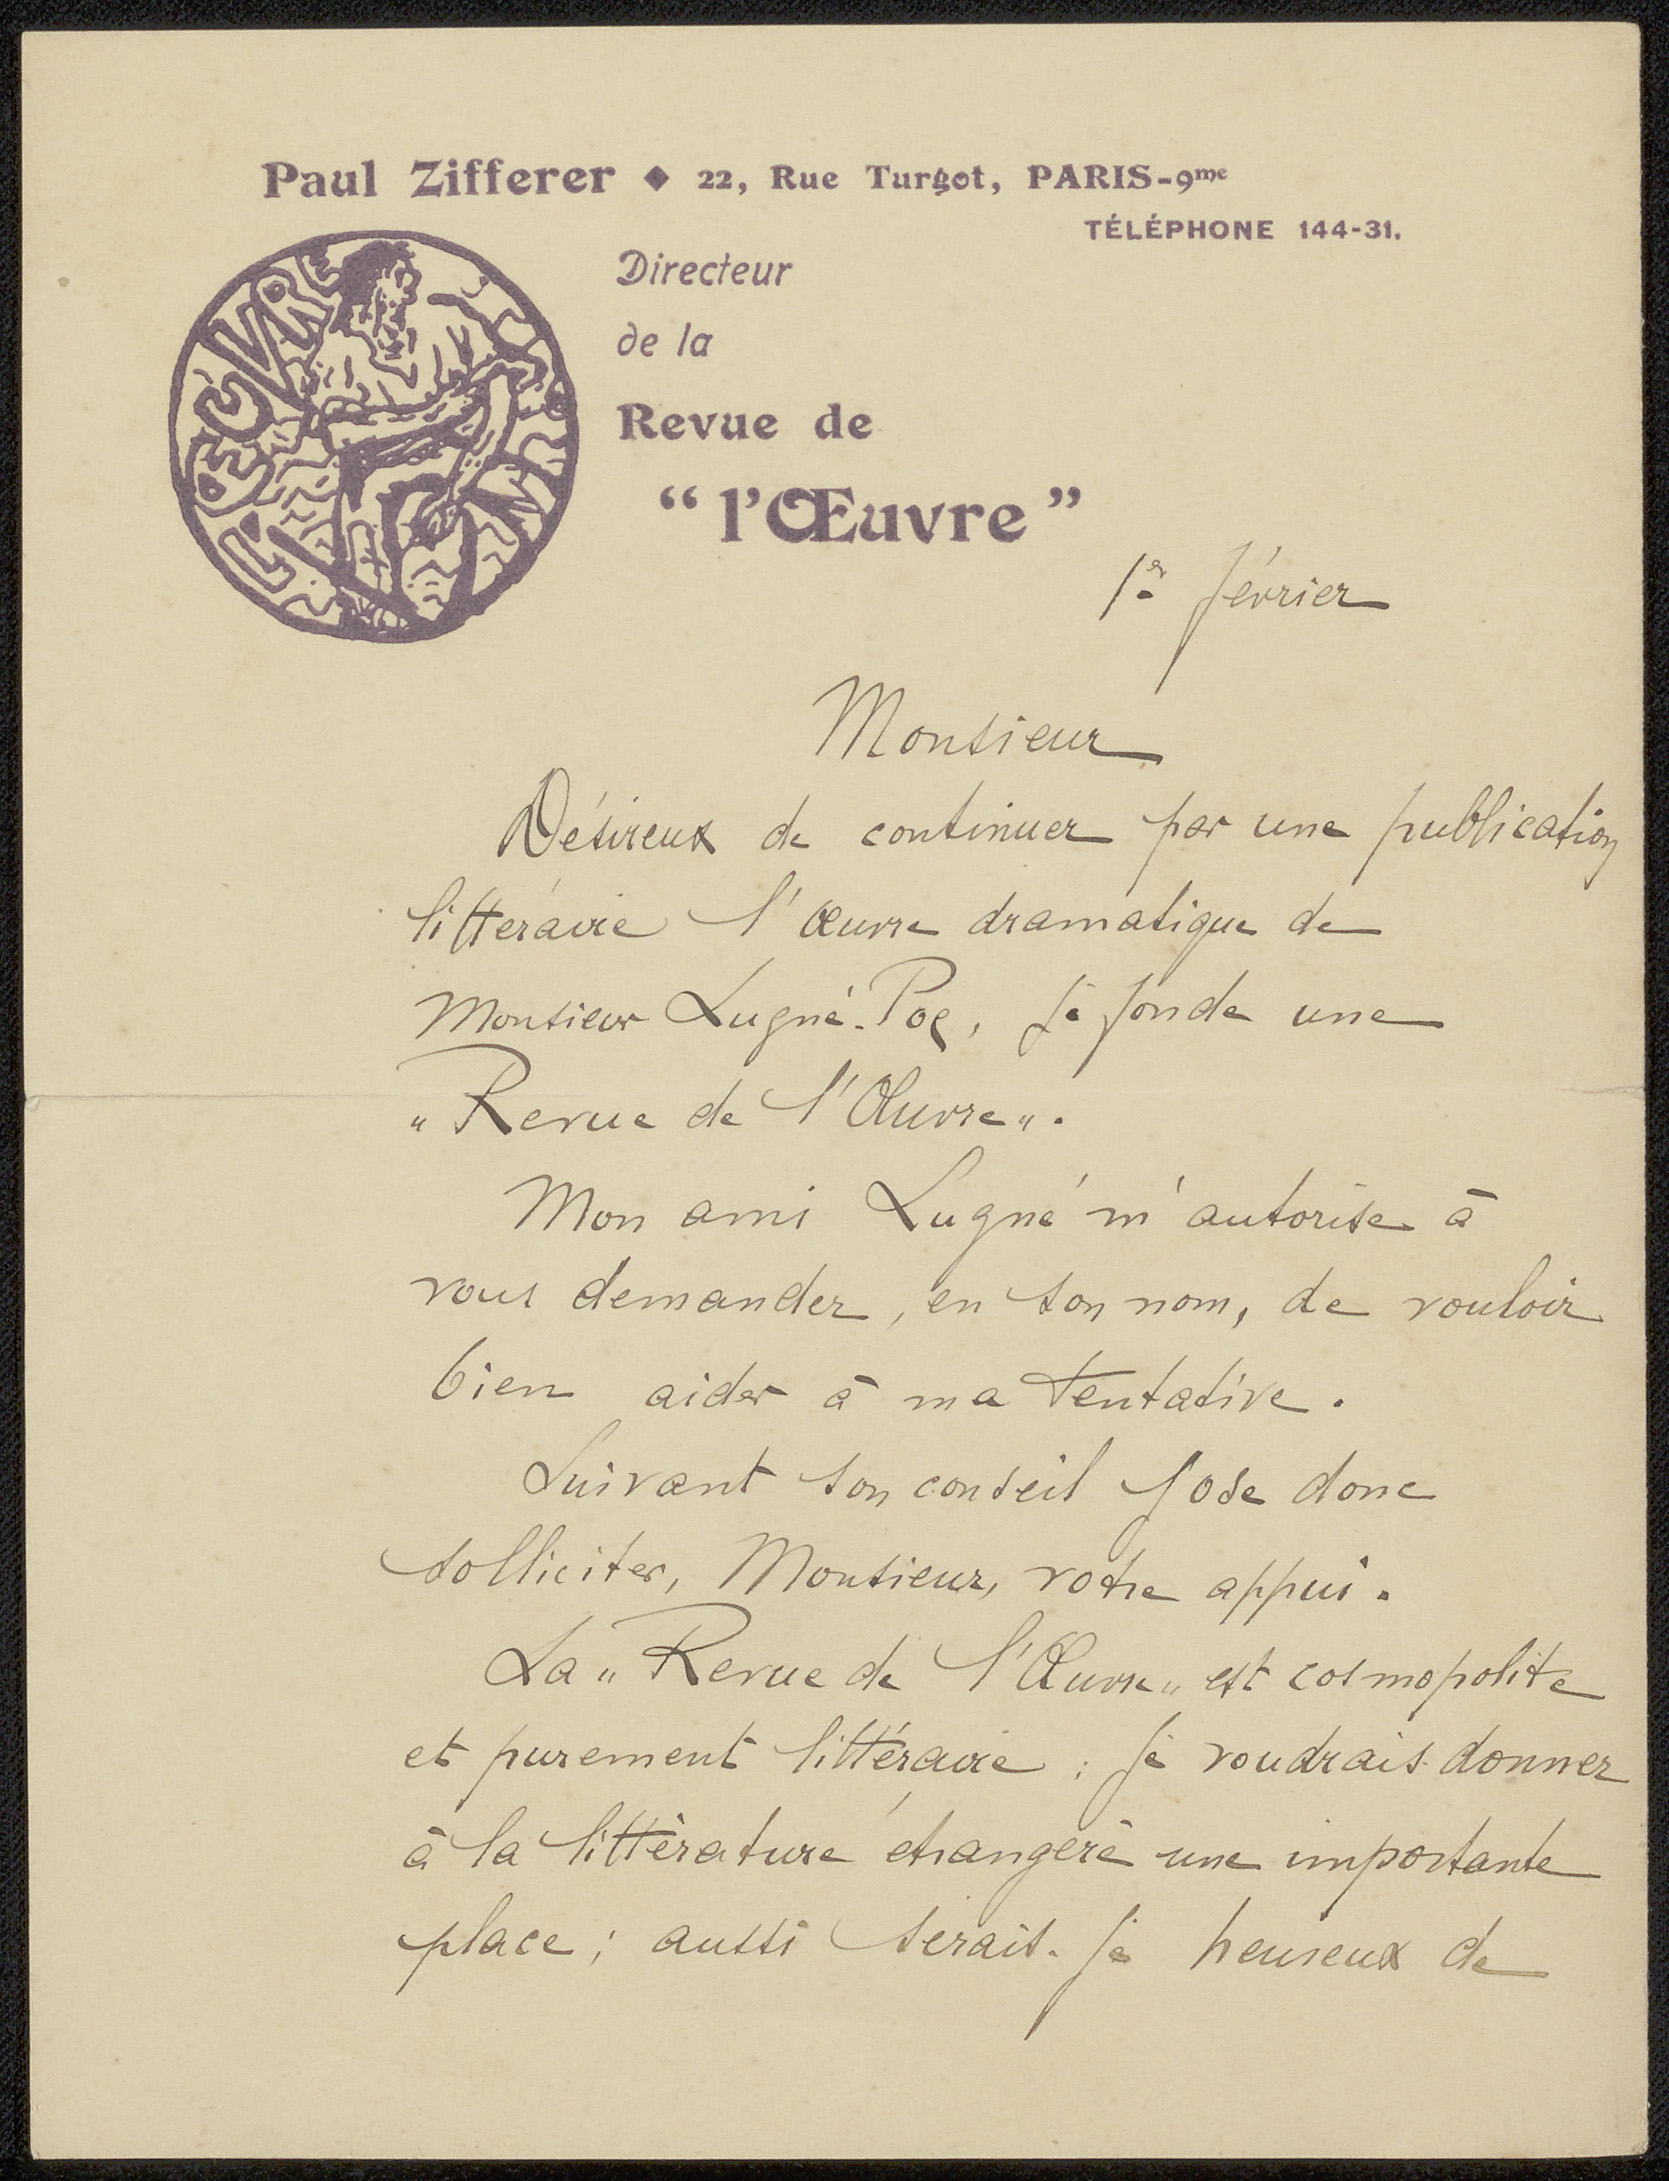 Paul Zifferer ◆ 22, Rue Turgot, PARIS-9me
TÉLÉPHONE 144-31.
L'OEUVRE
Directeur
de la
Revue de
“l'Œuvre”
1er février
Monsieur
Désireux de continuer par une publication
littéraire l'œuvre dramatique de
Monsieur Lugné-Poe, je fonde une
„Revue de l'Œuvre„.
Mon ami Lugné m'autorise à
vous demander, en son nom, de vouloir
bien aider à ma tentative.
Suivant son conseil j'ose donc
solliciter, Monsieur, votre appui.
La „Revue de l'Œuvre„ est cosmopolite
et purement littéraire ; je voudrais donner
à la littérature étrangère une importante
place ; aussi serais-je heureux de